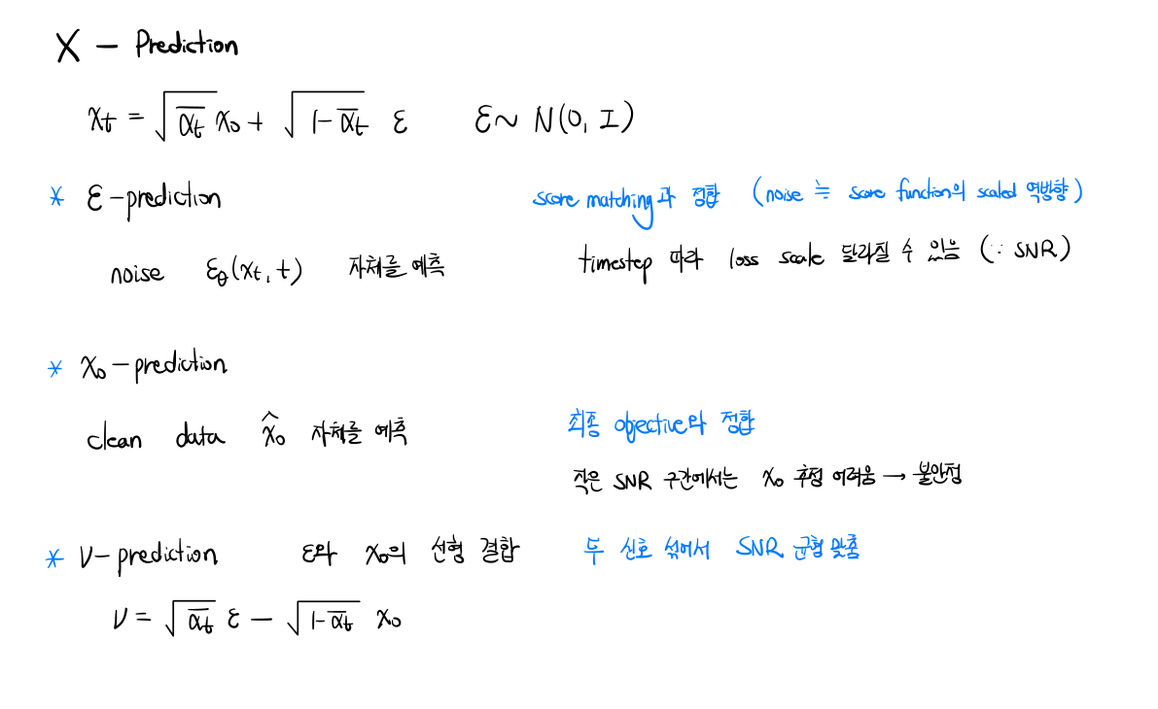 X - Prediction
x_t = √(ᾱ_t) x_0 + √(1-ᾱ_t) ε    ε ~ N(0, I)
* ε-prediction    score matching과 정합 (noise ≒ score function의 scaled 역방향)
noise ε_θ(x_t, t) 자체를 예측    timestep 따라 loss scale 달라질 수 있음 (∵ SNR)
* x_0-prediction
clean data x̂_0 자체를 예측    최종 objective와 정합
작은 SNR 구간에서는 x_0 추정 어려움 → 불안정
* v-prediction    ε와 x_0의 선형 결합    두 신호 섞어서 SNR 균형 맞춤
v = √(ᾱ_t) ε - √(1-ᾱ_t) x_0